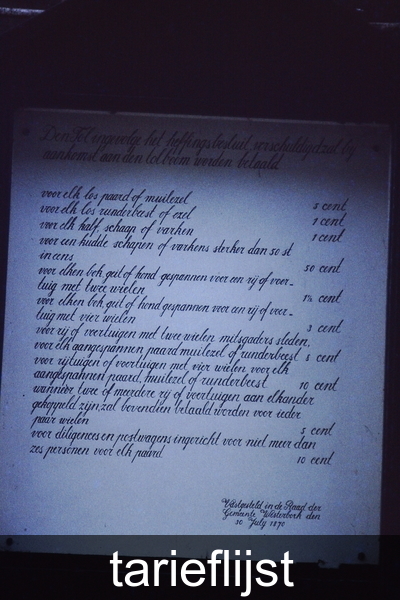 Den Tol ingevolge het heffingsbesluit verschuldigd zal bij
aankomst aan den tolboom worden betaald
voor elk los paard of muilezel 5 cent
voor elk los runderbeest of ezel 1 cent
voor elk half, schaap of varken 1 cent
voor een kudde schapen of varkens sterker dan 50 st
in eens 50 cent
voor elken bok, geit of hond gespannen voor een rij of voer-
tuig met twee wielen 1½ cent
voor elken bok, geit of hond gespannen voor een rij of voer-
tuig met vier wielen 3 cent
voor rij of voertuigen met twee wielen mitsgaders sleden,
voor elk aangespannen paard muilezel of runderbeest 5 cent
voor rijtuigen of voertuigen met vier wielen voor elk
aangespannen paard, muilezel of runderbeest 10 cent
wanneer twee of meerdere rij of voertuigen aan elkander
gekoppeld zijn, zal bovendien betaald worden voor ieder
paar wielen 5 cent
voor diligences en postwagens ingericht voor niet meer dan
zes personen voor elk paard 10 cent
Vastgesteld in de Raad der
Gemeente Westerbork den
30 July 1870
tarieflijst